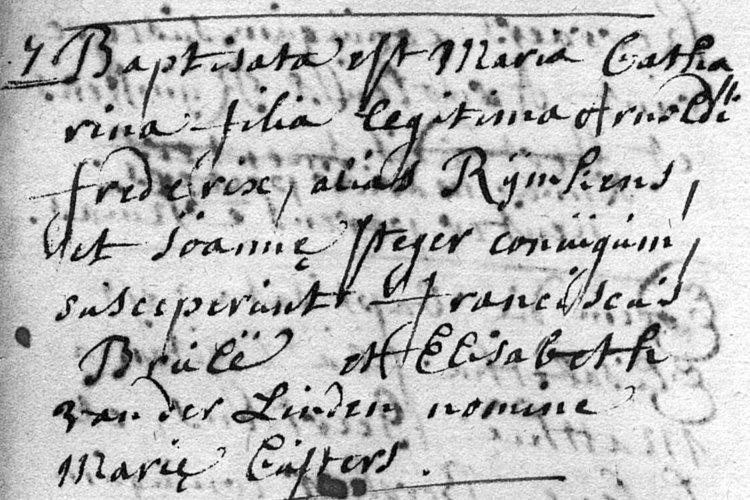 7 Baptisata est Maria Catha
rina filia legitima Arnoldi
frederix, alias Rÿmkens,
et Joannę steger coniugum,
susceperunt franciscus
Brulë et Elisabeth
van der Linden nomine
Marię Custers.